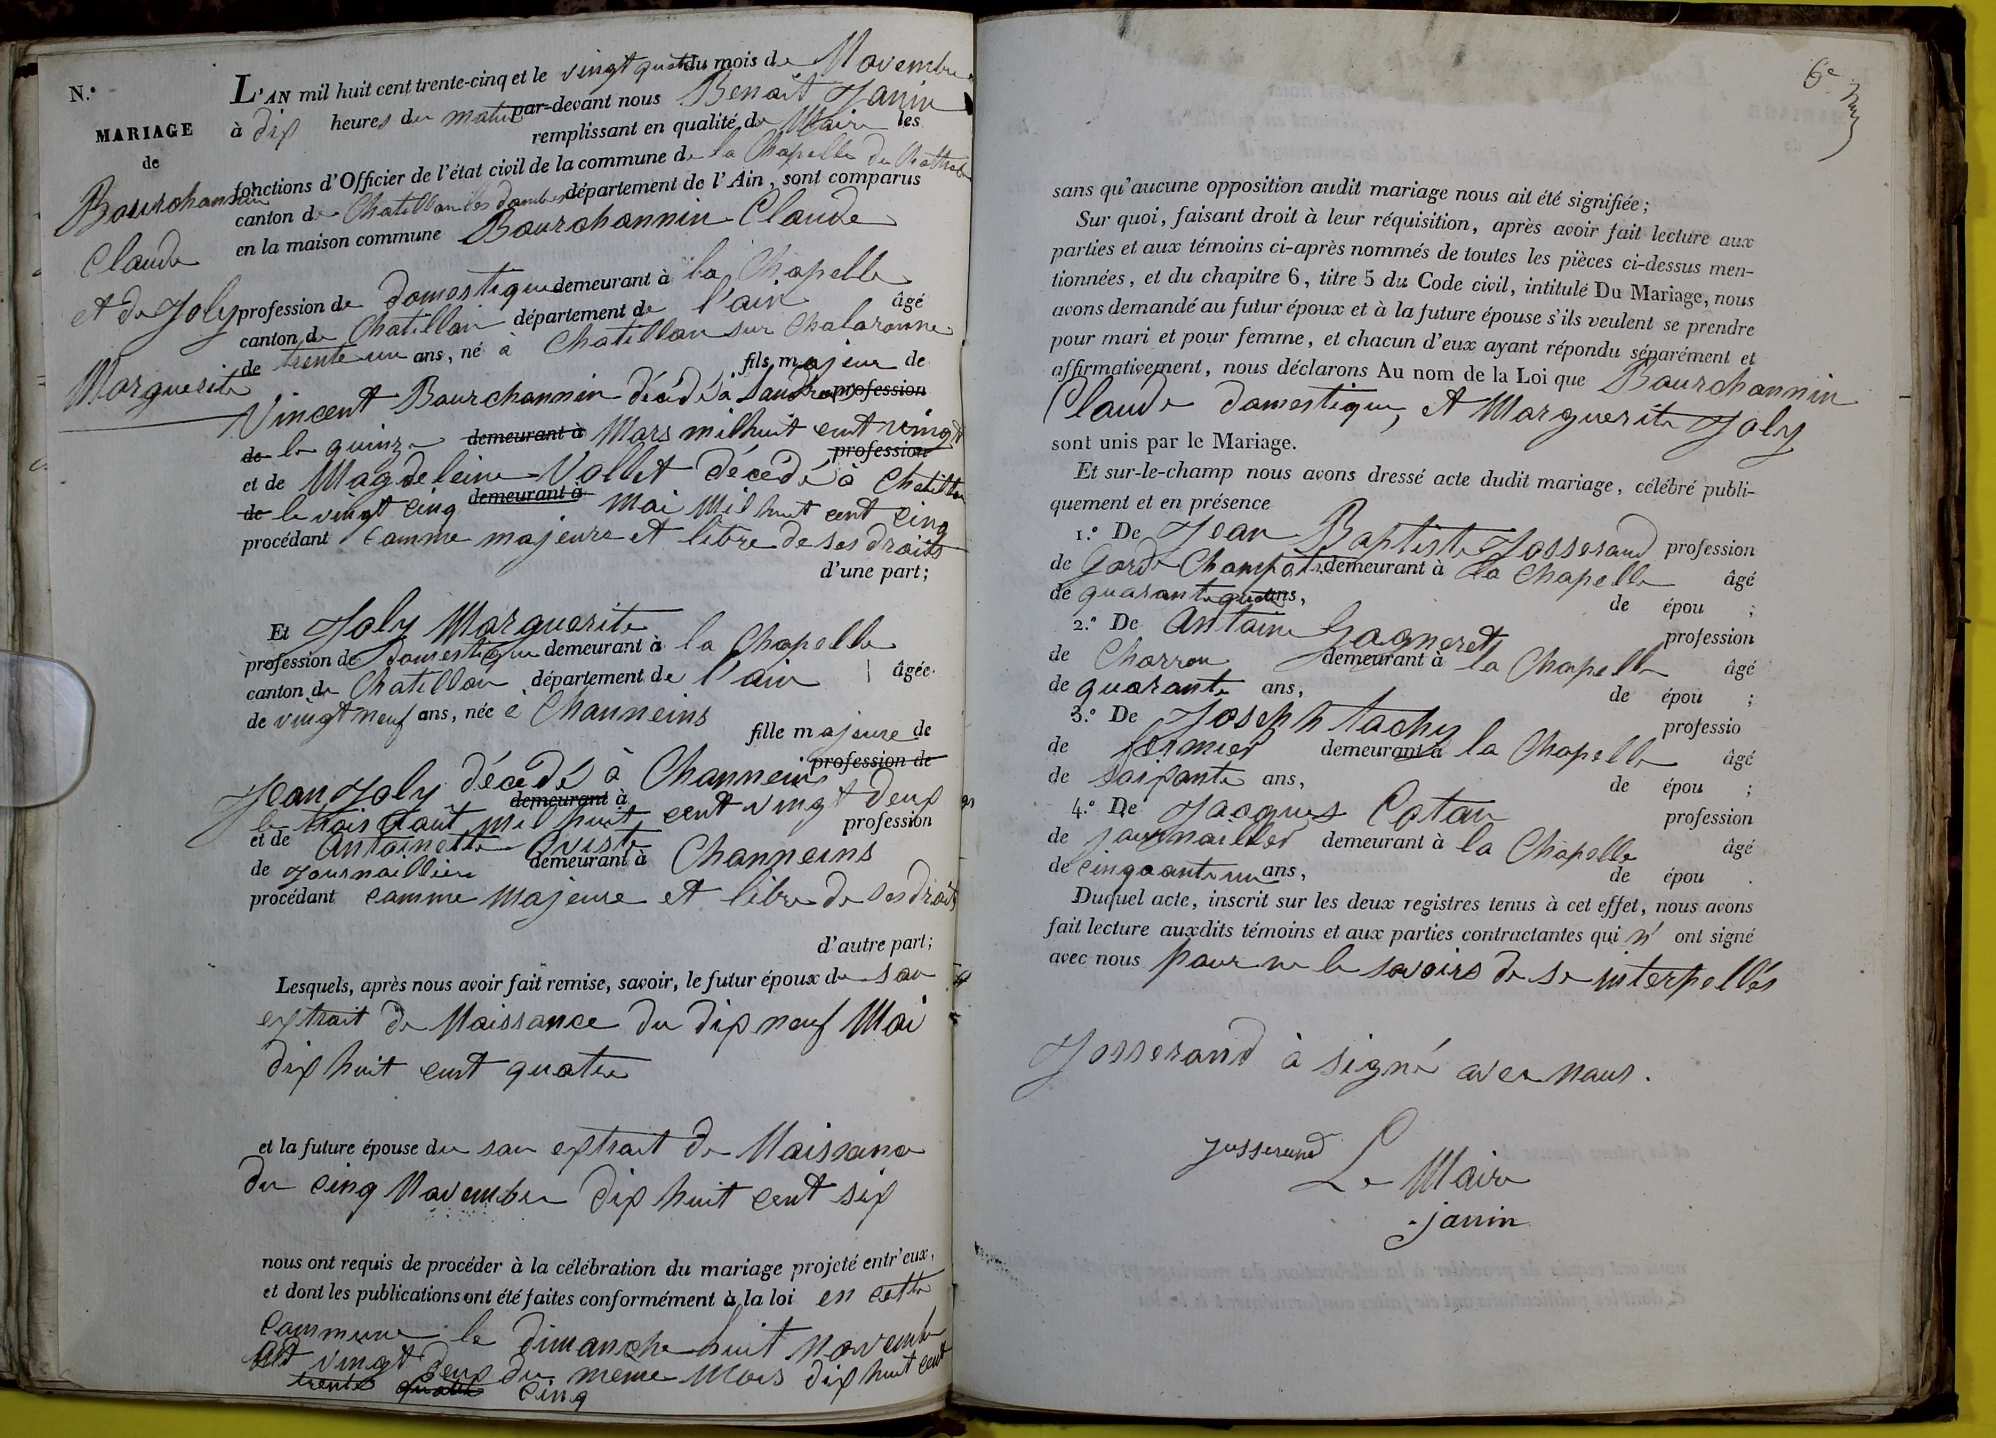 N.o
MARIAGE
de
Bourchannin
Claude
et de Joly
Marguerite
L'AN mil huit cent trente-cinq et le vingt quatre du mois de Novembre
à dix heures du matin par-devant nous Benoit Janin
remplissant en qualité de Maire les
fonctions d'Officier de l'état civil de la commune de la Chapelle du Chatelard
canton de Chatillon les dombes département de l'Ain, sont comparus
en la maison commune Bourchannin Claude
profession de domestique demeurant à la Chapelle
canton de Chatillon département de l'ain âgé
de trente un ans, né à Chatillon sur Chalaronne
fils majeur de
Vincent Bourchannin décédé à profession
de le quinze demeurant à Mars mil huit cent vingt
profession
et de Magdeleine Vollet décédé à Chatillon
de le vingt cinq demeurant à Mai Mil huit cent cinq
procédant comme majeure et libre de ses droits
d'une part;
Et Joly Marguerite
profession de domestique demeurant à la Chapelle
canton de Chatillon département de l'ain âgée
de vingt neuf ans, née à Channeins
fille majeure de
profession de
Jean Joly décédé à Channeins
demeurant à
le trois Aout mil huit cent vingt deux
profession
et de Antoinette
de Journaillière demeurant à Channeins
procédant comme Majeure et libre de ses droits
d'autre part;
Lesquels, après nous avoir fait remise, savoir, le futur époux de son
extrait de Naissance du dix neuf Mai
dix huit cent quatre
et la future épouse de son extrait de Naissance
du cinq Novembre dix huit cent six
nous ont requis de procéder à la célébration du mariage projeté entr'eux,
et dont les publications ont été faites conformément à la loi en cette
commune le dimanche huit novembre
et vingt deux du meme Mois dix huit cent
trente quatre cinq
6e
sans qu'aucune opposition audit mariage nous ait été signifiée;
Sur quoi, faisant droit à leur réquisition, après avoir fait lecture aux
parties et aux témoins ci-après nommés de toutes les pièces ci-dessus men-
tionnées, et du chapitre 6, titre 5 du Code civil, intitulé Du Mariage, nous
avons demandé au futur époux et à la future épouse s'ils veulent se prendre
pour mari et pour femme, et chacun d'eux ayant répondu séparément et
affirmativement, nous déclarons Au nom de la Loi que Bourchannin
Claude domestique, et Marguerite Joly
sont unis par le Mariage.
Et sur-le-champ nous avons dressé acte dudit mariage, célébré publi-
quement et en présence
1.o De Jean Baptiste Josserand profession
de Garde Champetre demeurant à la Chapelle âgé
de quarante quatre ans, de épou ;
2.o De Antoine Gagneret profession
de Charron demeurant à la Chapelle âgé
de quarante ans, de épou ;
3.o De Joseph tachy professio
de fermier demeurant à la Chapelle âgé
de soixante ans, de épou ;
4.o De Jacques Cotan profession
de journaillier demeurant à la Chapelle âgé
de cinquante un ans, de épou .
Duquel acte, inscrit sur les deux registres tenus à cet effet, nous avons
fait lecture auxdits témoins et aux parties contractantes qui n' ont signé
avec nous pour ne le savoirs de se interpellés
Josserand à signé avec nous.
josserand
Le Maire
janin